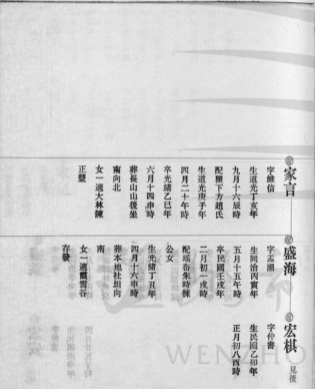 家言
字維信
生道光丁亥年
九月十六辰時
配樫下方趙氏
生道光庚子年
四月二十午時
卒光緒乙巳年
六月十四申時
葬長山山後坐
南向北
女一適大林陳
正豐
盛海
字孟潮
生同治丙寅年
五月十五午時
卒民國壬戌年
二月初一戌時
配瑤岙朱時棟
公女
生光緒丁丑年
四月十六申時
葬本地社垟向
南
女一適霞雲谷
存發
宏棋 見後
字仲書
生民國乙卯年
正月初八酉時
WENZHO